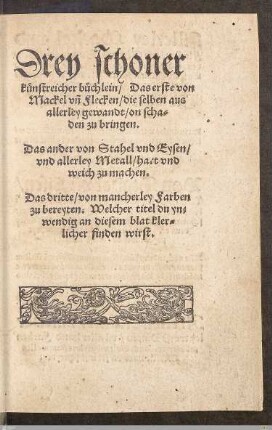 Drey schoner
künstreicher büchlein/ Das erste von
Mackel vñ Flecken/die selben aus
allerley gewandt/on scha-
den zu bringen.
Das ander von Stahel vnd Eysen/
vnd allerley Metall/hart vnd
weich zu machen.
Das dritte/von mancherley Farben
zu bereyten. Welcher titel du yn-
wendig an diesem blat kler-
licher finden wirst.